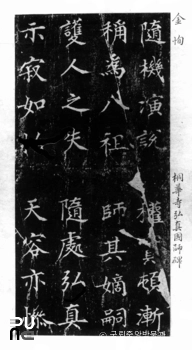 金恂
桐華寺弘真國師碑
隨機演說 權 頓漸
稱為八祖 師其嫡嗣
護人之失 隨處弘真
示寂如 天容亦
국립중앙박물관